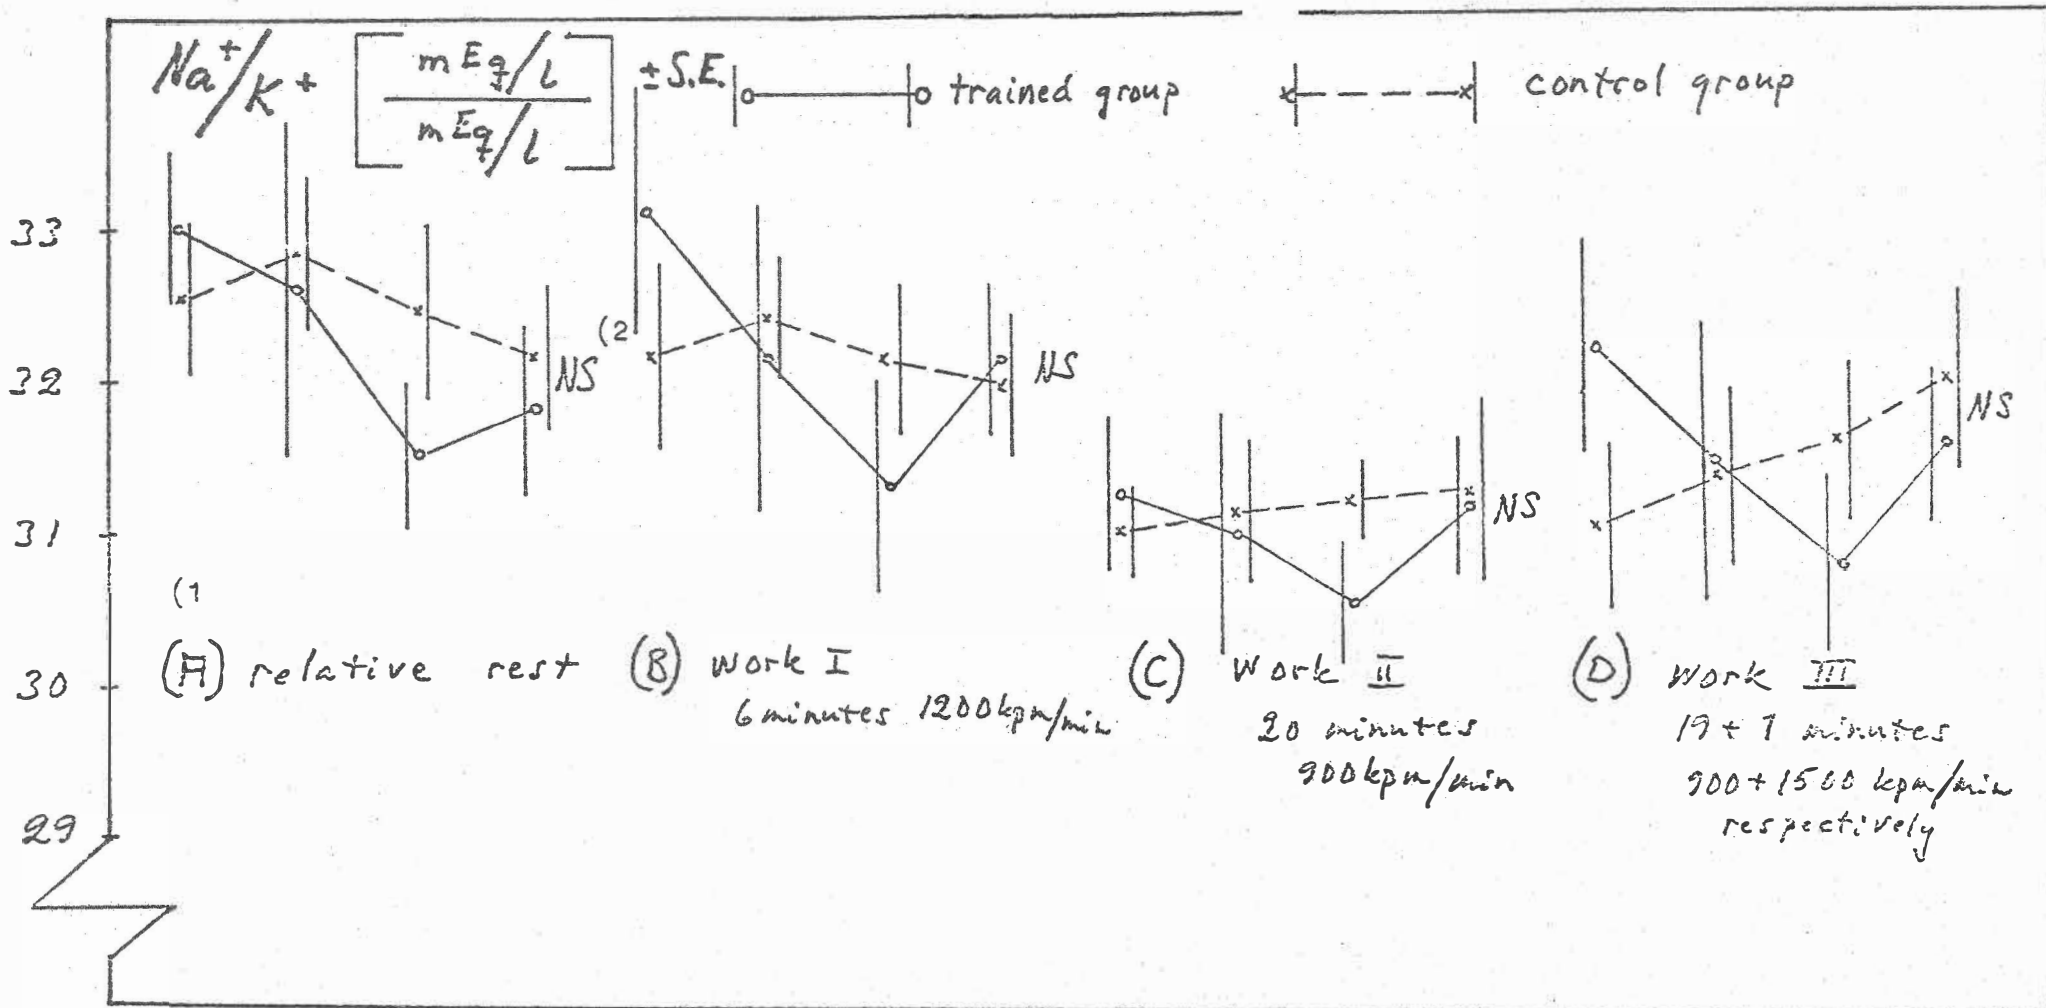 Na⁺/K⁺ [mEq/l / mEq/l] ± S.E. trained group control group
33
32
31
30
29
NS (2
NS
NS
NS
(1
(A) relative rest
(B) work I
6 minutes 1200 kpm/min
(C) Work II
20 minutes
900 kpm/min
(D) Work III
19 + 1 minutes
900 + 1500 kpm/min
respectively